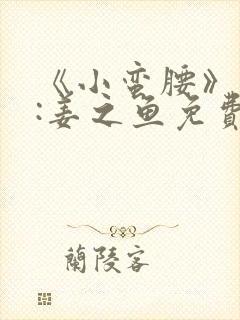 《小蛮腰》
:姜之鱼免費
蘭陵客